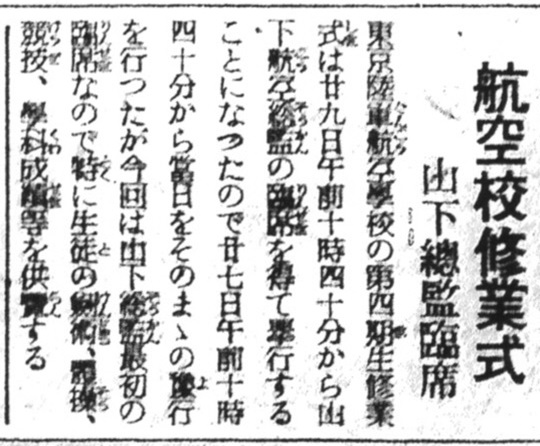 航空校修業式
山下總監臨席
東京陸軍航空學校の第四期生修業
式は廿九日午前十時四十分から山
下航空總監の臨席を得て擧行する
ことになつたので廿七日午前十時
四十分から當日をそのまゝの豫行
を行つたが今回は山下總監最初の
臨席なので特に生徒の劍術、體操、
競技、學科成績等を供覽する